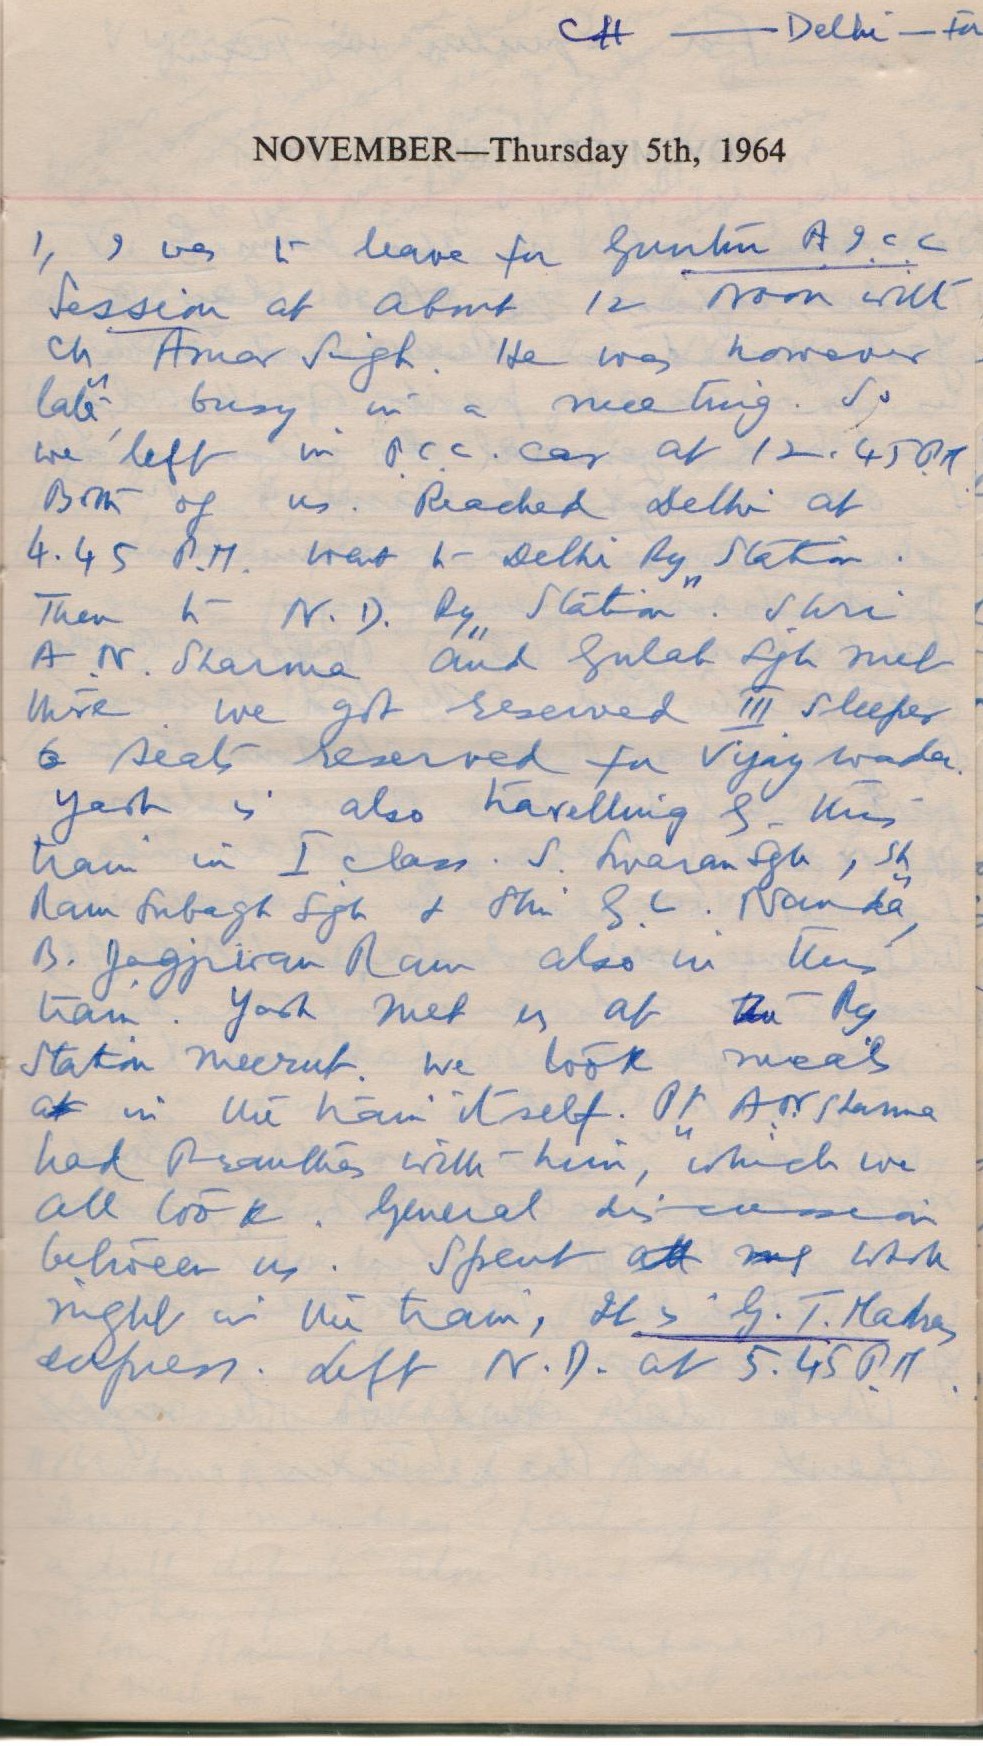 CH — Delhi —
NOVEMBER—Thursday 5th, 1964
1, I was to leave for Guntur A I C C
Session at about 12 Noon with
Ch Amar Singh. He was however
late, busy in a meeting. So
we left in P.C.C. car at 12.45 P.M.
Both of us. Reached Delhi at
4.45 P.M. Went to Delhi Ry Station.
Then to N. D. Ry Station. Shri
A. N. Sharma and Gulab Sgh met
there. We got reserved III Sleeper
6 seats reserved for Vijaywada.
Yash is also travelling by this
train in I class. S. Swaran Sgh, Sh
Ram Subagh Sgh & Shri G. L. Nanda,
B. Jagjiwan Ram also in this
train. Yash met us at the Ry
Station Meerut. We took meals
at in the train itself. Pt A.N. Sharma
had Praunthas with him, which we
all took. General discussion
between us. Spent all my whole
night in the train, It is G. T. Madras
express. Left N.D. at 5.45 P.M.